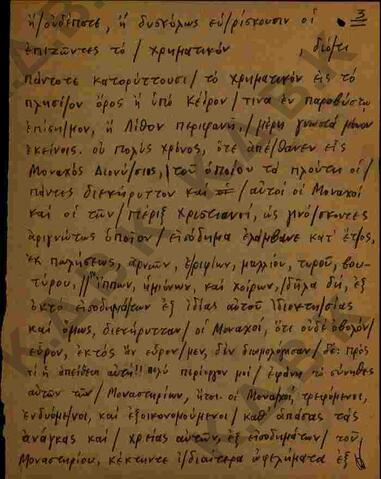 3
ἤ/οὐδέποτε, ἤ δυσκόλως εὑ/ρίσκουσιν οἱ
ἐπιζῶντες τό / χρηματικόν , διό/τι
πάντοτε κατορύττουσι/ τό χρηματικόν εἰς τό
πλησί/ον ὄρος ἤ ὑπό κέδρον / τινα ἐν παραβύστῳ
ἐπίση/μον, ἤ λίθον περιφανῆ,/ μέρη γνωστά μόνον
ἐκείνοις. οὐ πολύς χρόνος, ὅτε ἀπέ/θανεν εἷς
Μοναχός Διονύ/σιος, τοῦ ὁποίου τά πλούτη οἱ/
πάντες διεκήρυττον καί οἱ / αὐτοί οἱ Μοναχοί
καί οἱ τῶν / πέριξ Χριστιανοί, ὡς γινώ/σκοντες
ἀριγνώτως ὁποῖον / εἰσόδημα ἐλάμβανε κατ' ἔτος,
ἐκ πωλήσεως, ἀρνῶν, ἐριφίων, μαλλίου, τυροῦ, βου-
τύρου, // ἵππων, ἡμιόνων, καί χοίρων,/ δῆλα δή, ἐξ
ὀκτώ εἰσοδημά/των ἐξ ἰδίας αὐτοῦ ἰδιοκτη/σίας
καί ὅμως, διεκήρυτταν/ οἱ Μοναχοί, ὅτι οὐδέ ὀβολόν/
εὗρον, ἐκτός ἄν εὗρον/μεν, δέν ὡμολόγησαν / δέ: πρός
τί ἡ ἀπείθεια αὐτή!! πολύ περίεργον μοί / ἐφάνη τό σύνηθες
αὐτῶν τῶν / Μοναστηρίων, ἤτοι οἱ Μοναχοί, τρεφόμενοι,
ἐνδυόμε/νοι, καί ἐξοικονομούμενοι / καθ' ἁπάσας τάς
ἀνάγκας καί / χρείας αὐτῶν, ἐξ εἰσοδημάτων / τοῦ
Μοναστηρίου, κέκτηνται ἰ/διαίτερα ὠφελήματα ἐξ